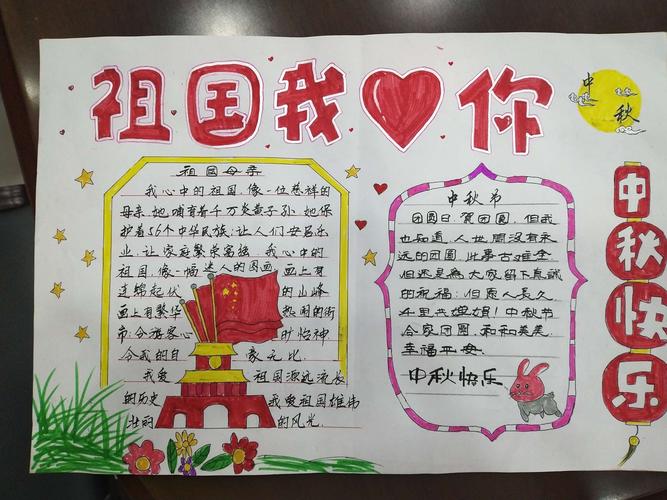 祖国我你
中秋
祖国母亲
我心中的祖国,像一位慈祥的
母亲,她哺育着千万炎黄子孙,她保
护着56个中华民族;让人们安居乐
业,让家庭繁荣富强,我心中的
祖国,像一幅迷人的图画,画上有
连绵起伏的山峰
画上有繁华热闹的街
市;令游客心旷怡神
令我的自豪无比
我爱祖国源远流长
的历史我爱祖国雄伟
壮丽的风光
中秋节
团圆日,贺团圆,但我
也知道,人世间没有永
远的团圆,此事古难全
但还是為大家留下真诚
的祝福:但愿人长久
千里共婵娟!中秋节
合家团圆,和和美美,
幸福平安.
中秋快乐
中秋快乐